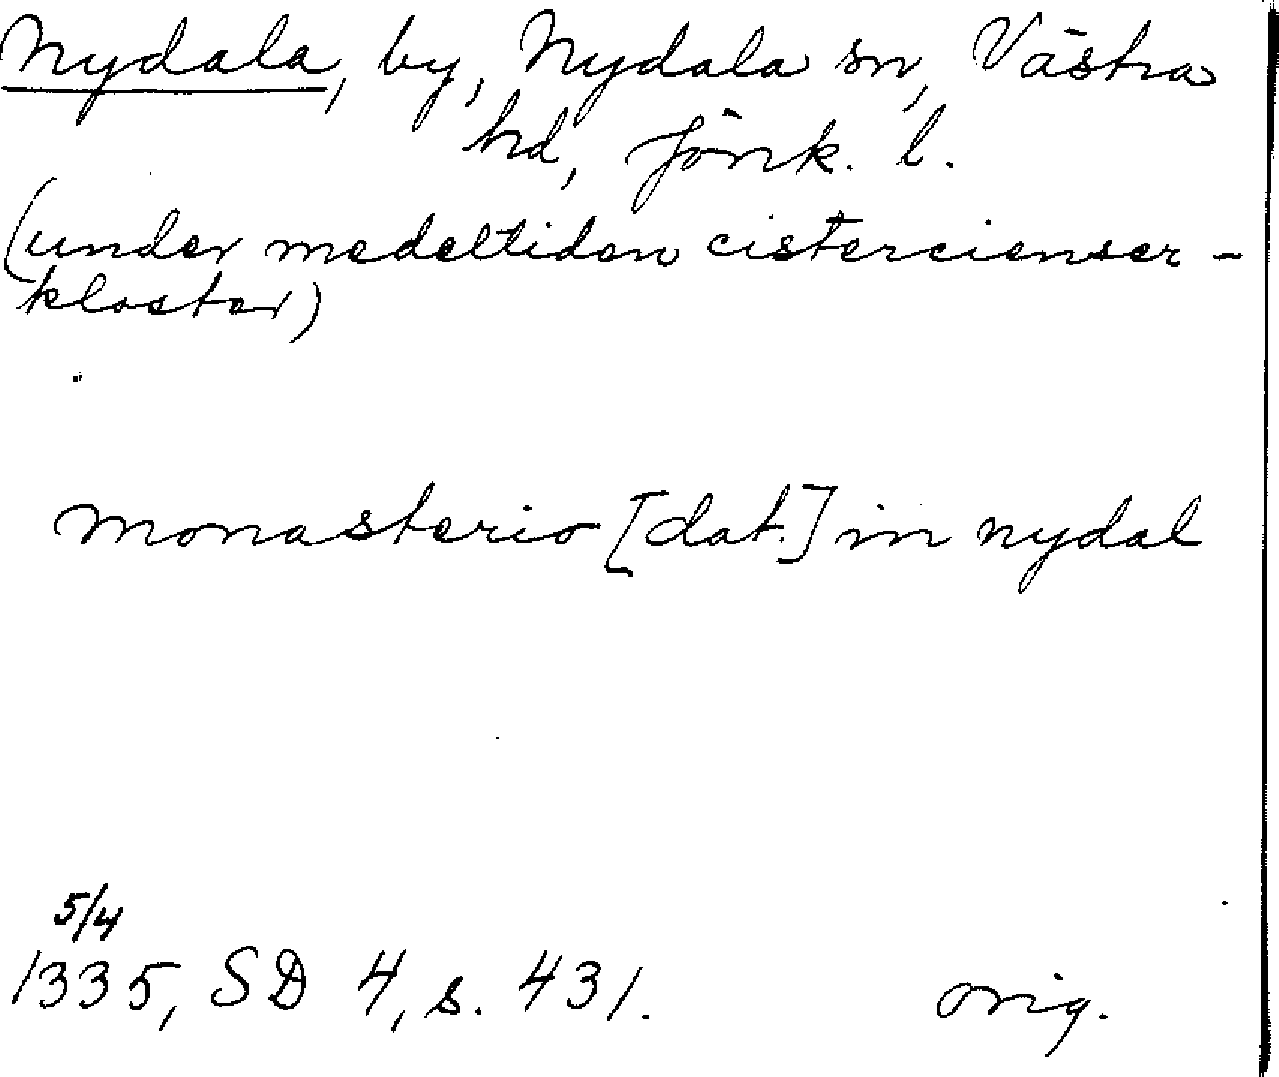 Nydala, by, Nydala sn, Västra
hd, Jönk. l.
(under medeltiden cistercienser-
kloster)
monasterio [dat.] in nydal
5/4
1335, SD 4, s. 431. orig.